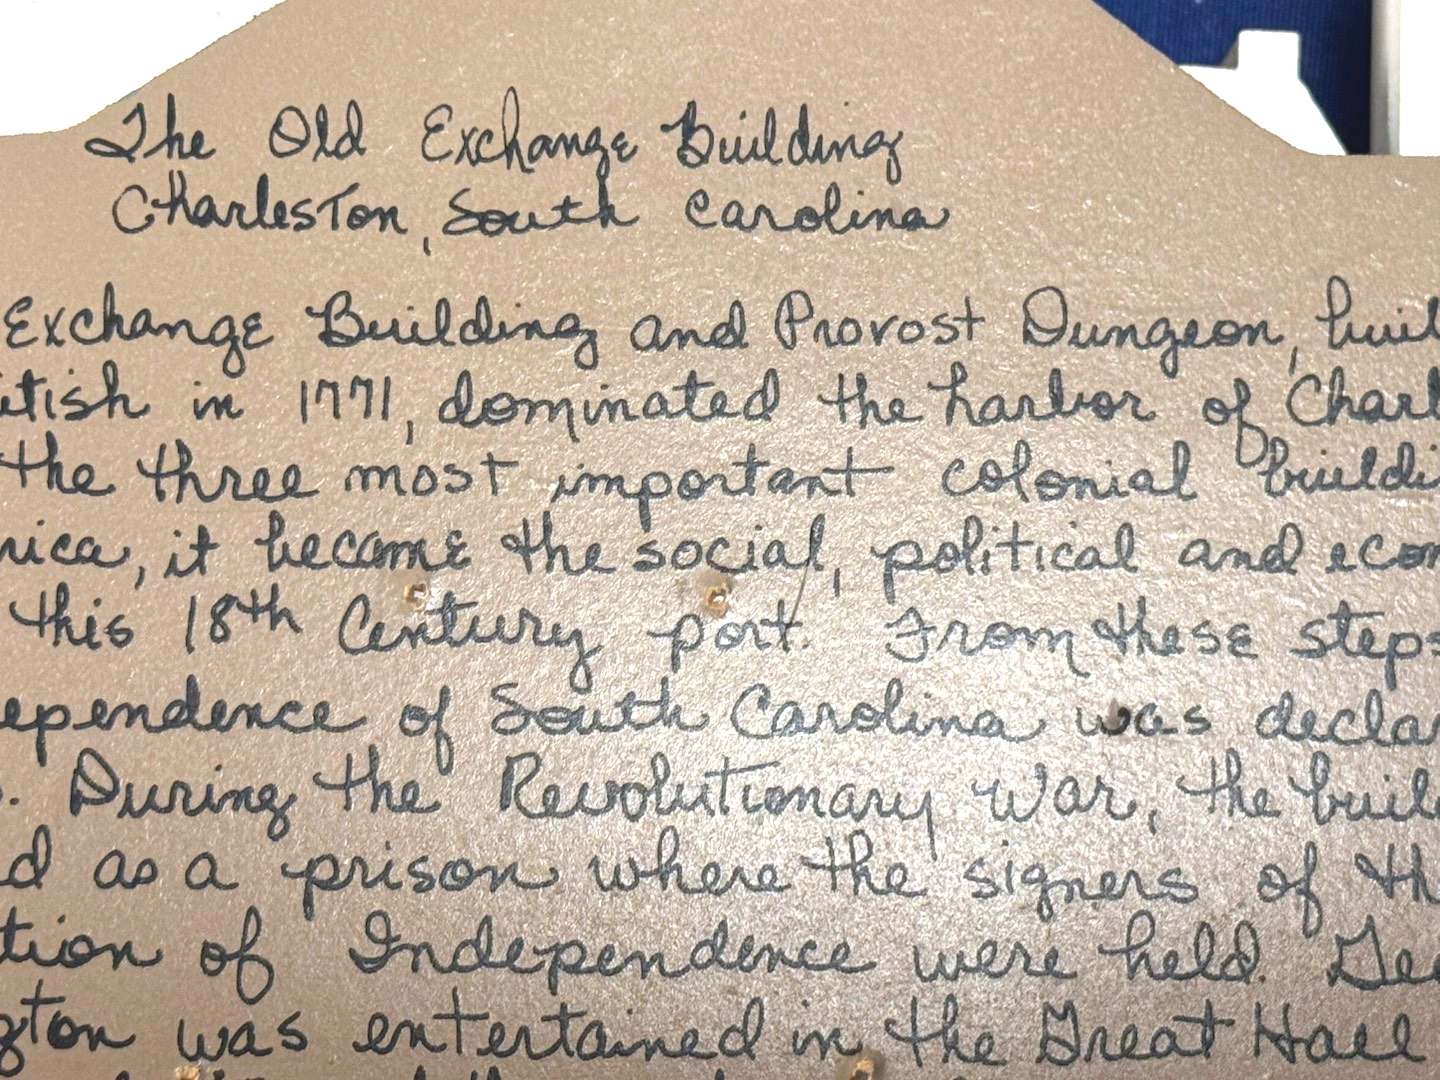 The Old Exchange Building
Charleston, South Carolina
Exchange Building and Provost Dungeon, buil
itish in 1771, dominated the harbor of Charl
the three most important colonial buildi
rica, it became the social, political and econ
this 18th Century port. From these steps
ependence of South Carolina was declar
. During the Revolutionary War, the buil
d as a prison where the signers of th
tion of Independence were held. Geo
gton was entertained in the Great Hall